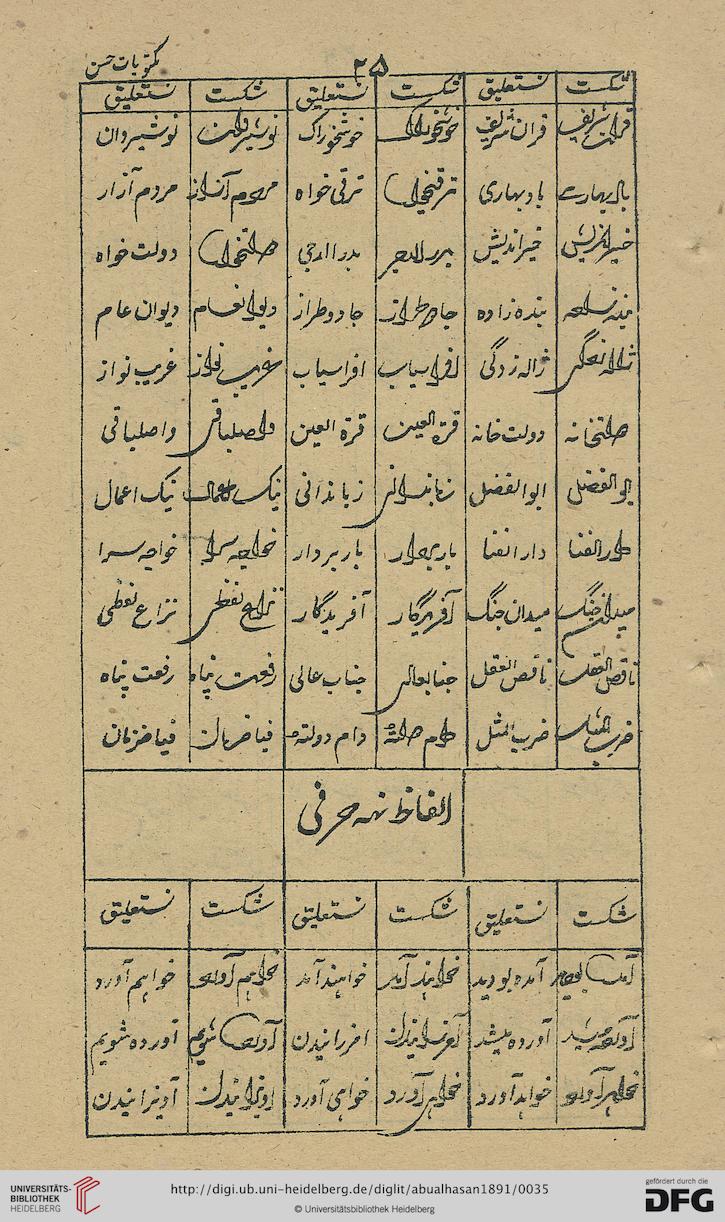 مکتوبات حسن
۲۵
شکست نستعلیق شکست نستعلیق شکست نستعلیق
قرآن شریف قرآن شریف خوشخوراک خوشخوراک نوشیروان نوشیروان
بادبهاری بادبهاری ترقی خواه ترقی خواه مردم آزار مردم آزار
خیراندیش خیراندیش بدرالدجی بدرالدجی دولت خواه دولت خواه
بنده زاده بنده زاده جادوطراز جادوطراز دیوان عام دیوان عام
ژاله زدگی ژاله زدگی افراسیاب افراسیاب غریب نواز غریب نواز
دولت خانه دولت خانه قرة العین قرة العین واصلباقی واصلباقی
ابوالفضل ابوالفضل زباندانی زباندانی نیک اعمال نیک اعمال
دارالفنا دارالفنا باربردار باربردار خواجه سرا خواجه سرا
میدان جنگ میدان جنگ آفریدگار آفریدگار نزاع لفظی نزاع لفظی
ناقص العقل ناقص العقل جناب عالی جناب عالی رفعت پناه رفعت پناه
ضرب المثل ضرب المثل دام دولته دام دولته فیاض زمان فیاض زمان
الفاظ نه حرفی
شکست نستعلیق شکست نستعلیق شکست نستعلیق
آمده بودید آمده بودید خواهند آمد خواهند آمد خواهم آورد خواهم آورد
آورده میشد آورده میشد آورده شویم آورده شویم
خواهد آورد خواهد آورد خواهی آورد خواهی آورد آویزانیدن آویزانیدن
UNIVERSITÄTS-
BIBLIOTHEK
HEIDELBERG
http://digi.ub.uni-heidelberg.de/diglit/abualhasan1891/0035
© Universitätsbibliothek Heidelberg
gefördert durch die
DFG